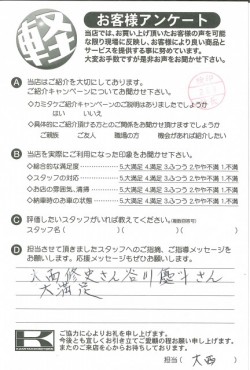 軽
お客様アンケート
当店では、お買い上げ頂いたお客様の声を可能
な限り現場に反映し、お客様により良い商品と
サービスを提供する事に努めています。
大変お手数ですが是非お声をお聞かせ下さい。
A 当店はご紹介を大切にしてあります。
ご紹介キャンペーンについてお聞かせ下さい。
◇カミタケご紹介キャンペーンのご説明はありましたでしょうか
はい いいえ
◇具体的にご紹介頂ける方とのご関係をお聞かせ頂けますでしょうか
ご親族 ご友人 職場の方 機会があれば紹介したい
B 当店を実際にご利用になった印象をお聞かせ下さい。
◇総合的な満足度 5.大満足 4.満足 3.ふつう 2.やや不満 1.不満
◇スタッフの対応 5.大満足 4.満足 3.ふつう 2.やや不満 1.不満
◇お店の雰囲気、清掃 5.大満足 4.満足 3.ふつう 2.やや不満 1.不満
◇納車時のお車の状態 5.大満足 4.満足 3.ふつう 2.やや不満 1.不満
C 評価したいスタッフがいれば教えてください。
スタッフ名( )( )( )
D 担当させて頂きましたスタッフへのご指摘、ご指導メッセージを
お願いします。応援メッセージもぜひお願いします。
大西修史さん谷川慶斗さん
大満足
K
ご協力に心よりお礼を申し上げます。
今後とも宜しくお引き立てご愛顧の程お願い申し上げます。
またのご来店を心からお待ちしております。
担当( 大西 )